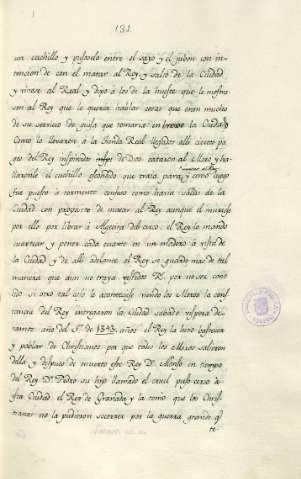 131
un cuchillo y pusoselo entre el sayo y el jubon con in-
tencion de con el matar al Rey, y salió de la Ciudad
y vinose al Real y dijo á los de la hueste que le
sen al Rey que le queria hablar cosas que eran mucho
de su servicio de guisa que tomaria en breve la Ciudad
Como lo llevaron á la tienda Real llegados allí ciertos pa-
ges del Rey inspirados de Dios cataron al Moro y ha-
llaronle el cuchillo que traia para y como
fue puesto á tormento confeso como havia salido de la
Ciudad con proposito de matar al Rey aunque el muriese
por ello por librar á Algecira del cerco. el Rey lo mando
cuartear y poner cada cuarto en un madero á vista de
la Ciudad y de allí adelante el Rey se guardó mas de tal
manera que aun no traya vestidos Rs. por no ser cono-
cido Si otro tal caso le aconteciese viendo los Moros la cons-
tancia del Rey entregaron la Ciudad sabado vispera de
año del Sr. de 1343 años el Rey la hizo bastecer
y poblar de Christianos por que todos los Moros salieron
della y despues de muerto este Rey Dn. Alonso en tiempo
del Rey Dn. Pedro su hijo llamado el cruel puso cerco á
esta Ciudad el Rey de Granada y la tomo que los Chris-
tianos no la pudieron socorrer por la guerra grande q